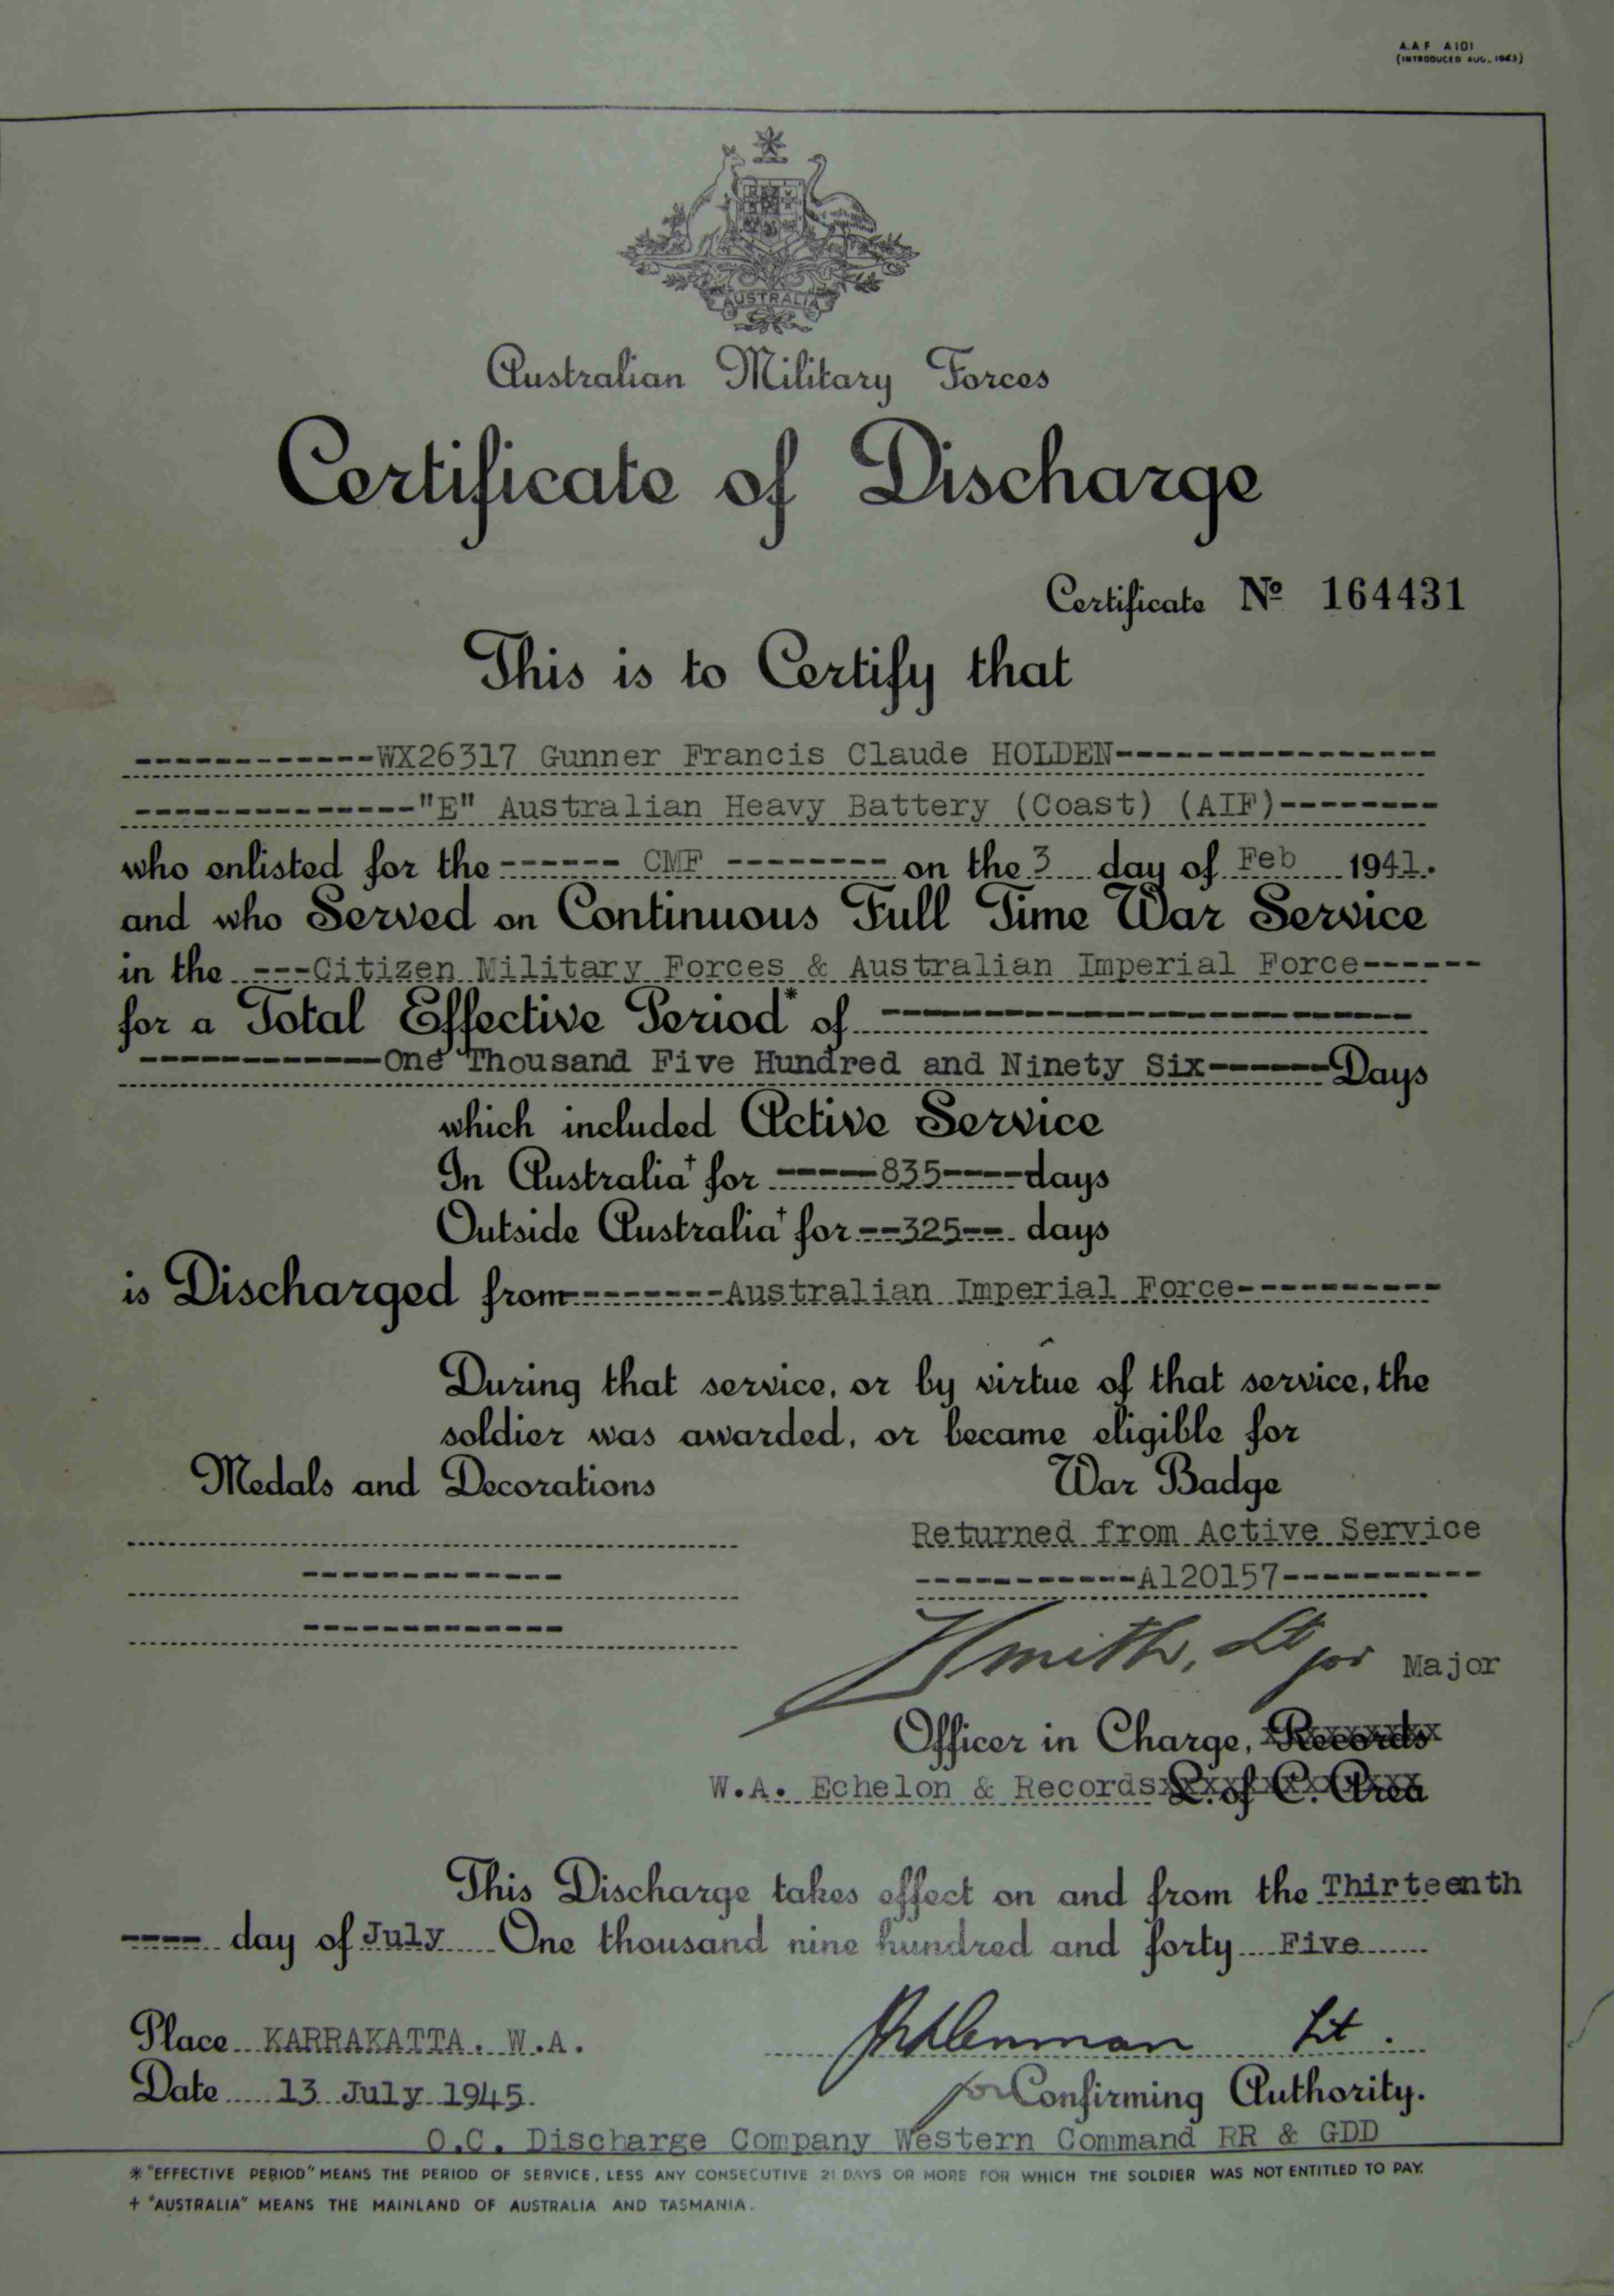 A.A F A101
(INTRODUCED AUG. 1943)
AUSTRALIA
Australian Military Forces
Certificate of Discharge
Certificate Nº 164431
This is to Certify that
------------WX26317 Gunner Francis Claude HOLDEN----------------
--------------"E" Australian Heavy Battery (Coast) (AIF)--------
who enlisted for the ------ CMF -------- on the 3 day of Feb 1941.
and who Served on Continuous Full Time War Service
in the ---Citizen Military Forces & Australian Imperial Force------
for a Total Effective Period* of --------------------------
------------One Thousand Five Hundred and Ninety Six------Days
which included Active Service
In Australia+ for -----835----days
Outside Australia+ for --325-- days
is Discharged from--------Australian Imperial Force----------
During that service, or by virtue of that service, the
soldier was awarded, or became eligible for
Medals and Decorations War Badge
Returned from Active Service
-------------- -----------A120157----------
--------------
Smith, Lt for Major
Officer in Charge, Records
W.A. Echelon & Records L. of C. Area
This Discharge takes effect on and from the Thirteenth
---- day of July One thousand nine hundred and forty Five
Place KARRAKATTA. W.A. Lt.
Date 13 July 1945. for Confirming Authority.
O.C. Discharge Company Western Command RR & GDD
* "EFFECTIVE PERIOD" MEANS THE PERIOD OF SERVICE, LESS ANY CONSECUTIVE 21 DAYS OR MORE FOR WHICH THE SOLDIER WAS NOT ENTITLED TO PAY.
+ "AUSTRALIA" MEANS THE MAINLAND OF AUSTRALIA AND TASMANIA.